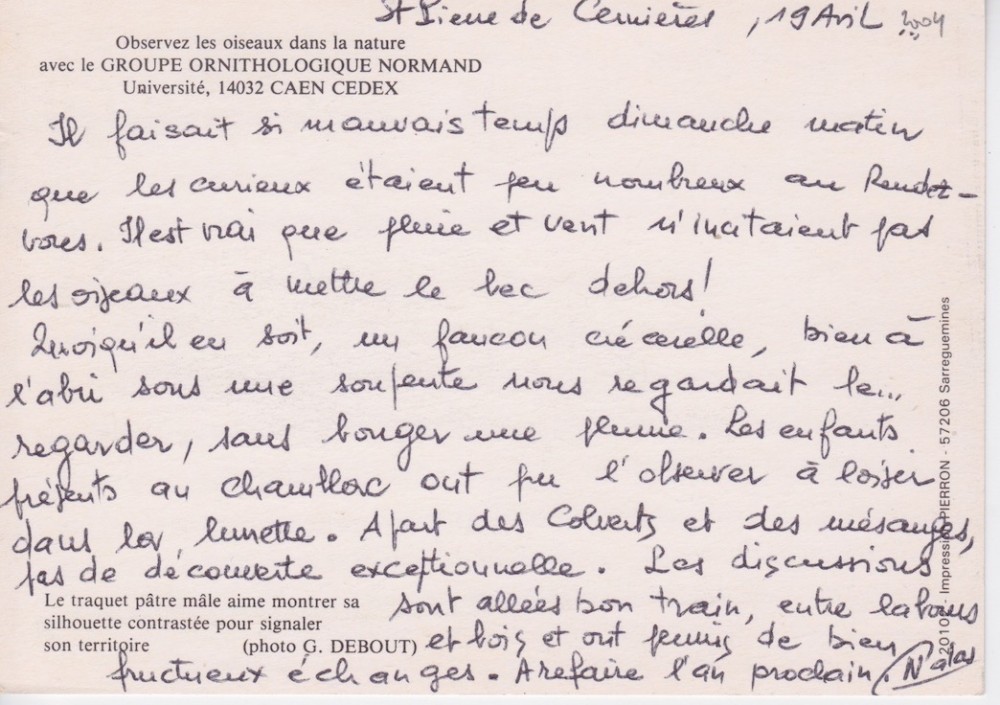 St Pierre de Cernières, 19 Avril 2004
Observez les oiseaux dans la nature
avec le GROUPE ORNITHOLOGIQUE NORMAND
Université, 14032 CAEN CEDEX
Il faisait si mauvais temps dimanche matin
que les curieux étaient peu nombreux au Rendez-
vous. Il est vrai que pluie et vent n'incitaient pas
les oiseaux à mettre le bec dehors!
Quoiqu'il en soit, un faucon crécerelle, bien à
l'abri sous une soupente nous regardait le...
regarder, sans bouger une plume. Les enfants
présents au chamblac ont pu l'observer à loisir
dans la lunette. A part des Colverts et des mésanges,
pas de découverte exceptionnelle. Les discussions
Le traquet pâtre mâle aime montrer sa
silhouette contrastée pour signaler
son territoire (photo G. DEBOUT)
sont allées bon train, entre labours
et bois et ont permis de bien
fructueux échanges. A refaire l'an prochain.
Impression PIERRON - 57206 Sarreguemines